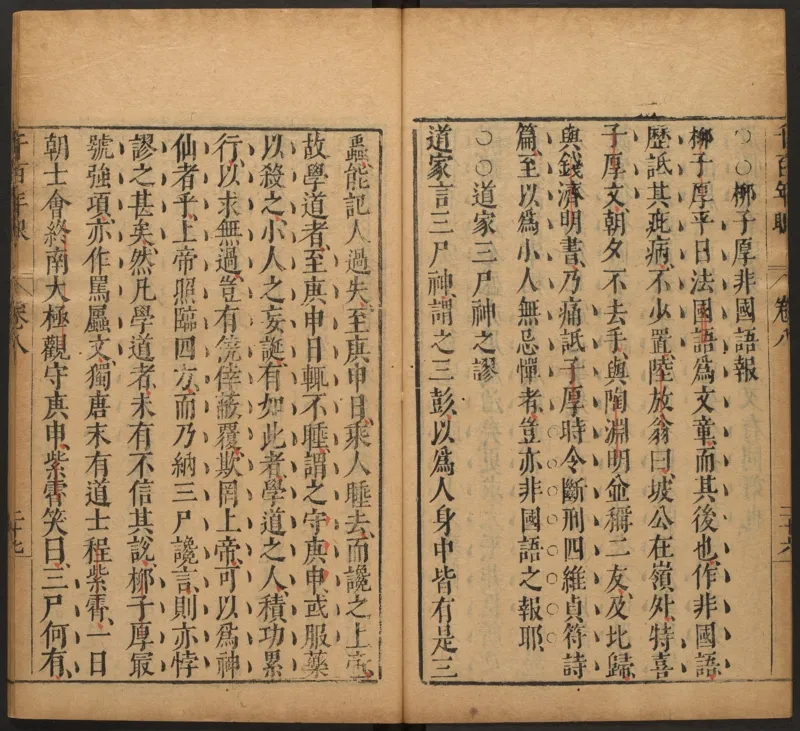 千百年眼 卷八 二十六
○○柳子厚非國語報
柳子厚平日法國語爲文章而其後也作非國語
歷詆其疵病不少置陸放翁曰坡公在嶺外特喜
子厚文朝夕不去手與陶淵明並稱二友及北歸
與錢濟明書乃痛詆子厚時令斷刑四維貞符詩
篇至以爲小人無忌憚者豈亦非國語之報耶
○○道家三尸神之謬
道家言三尸神謂之三彭以爲人身中皆有是三
蟲能記人過失至庚申日乘人睡去而讒之上帝
故學道者至庚申日輒不睡謂之守庚申或服藥
以殺之小人之妄誕有如此者學道之人積功累
行以求無過豈有僥倖蔽覆欺罔上帝可以爲神
仙者乎上帝照臨四方而乃納三尸讒言則亦悖
謬之甚矣然凡學道者未有不信其說柳子厚㝡
號強項亦作罵尸蟲文獨唐末有道士程紫霄一日
朝士會終南太極觀守庚申紫霄笑曰三尸何有
千百年眼 卷八 二十七